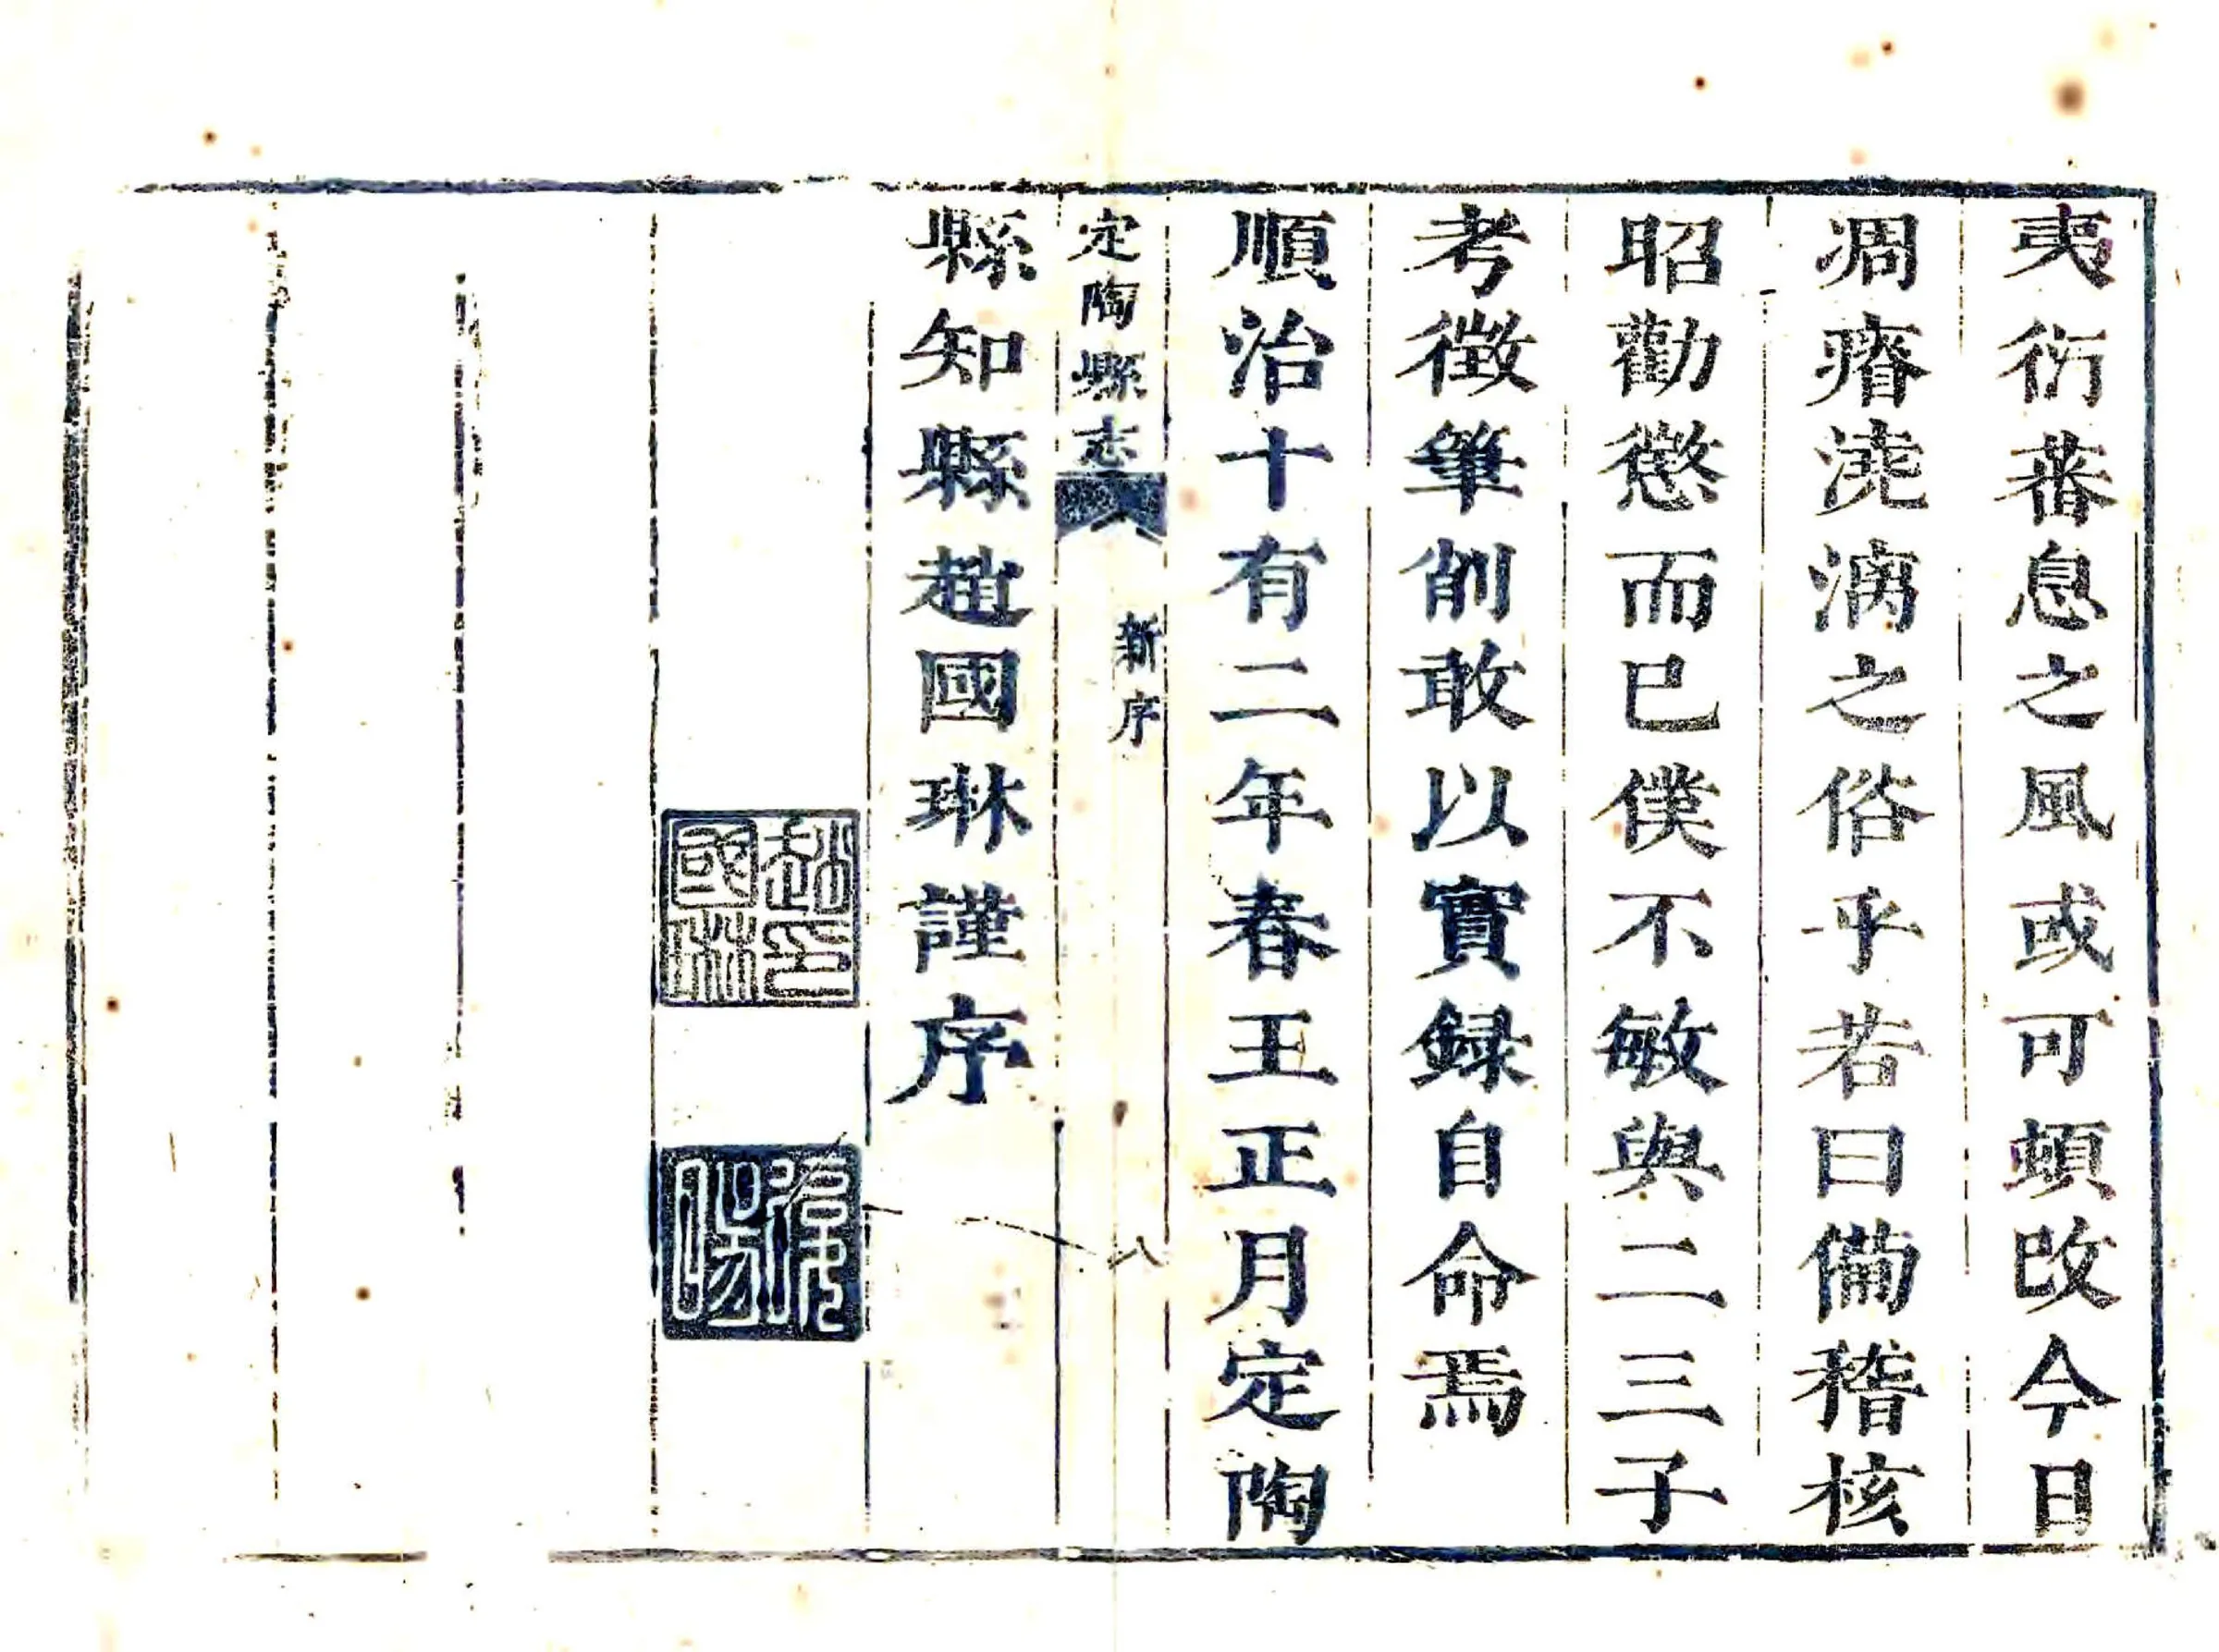 夷衍蕃息之風或可頓改今日
凋瘠澆漓之俗乎若曰備稽核
昭勸懲而已僕不敏與二三子
考徵筆削敢以實録自命焉
順治十有二年春王正月定陶
定陶縣志
新序
八
縣知縣趙國琳謹序
趙國琳印